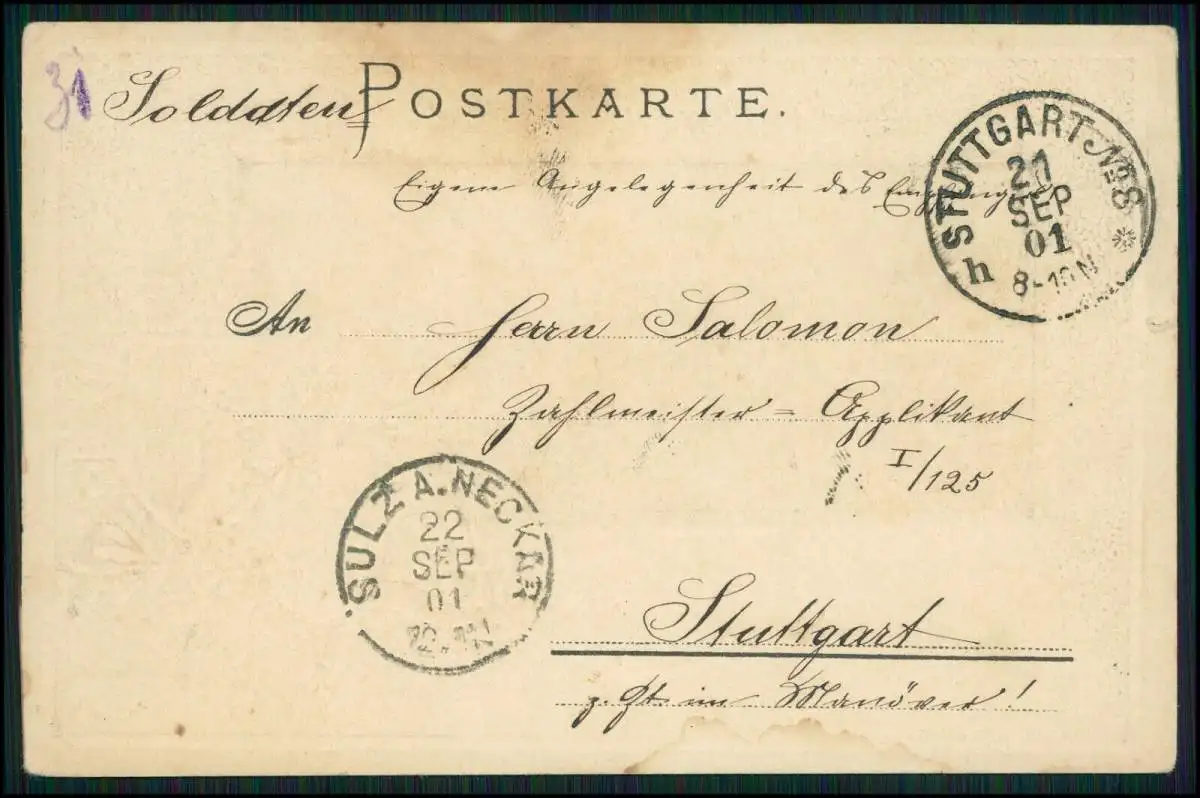 31 Soldaten= POSTKARTE.
Eigene Angelegenheit des Empfängers
STUTTGART No 8
21
SEP
01
h 8-10N
An Herrn Salomon
Zahlmeister = Applikant
I/125
SULZ A. NECKAR
22
SEP
01
Stuttgart
z. Zt. im Manöver!